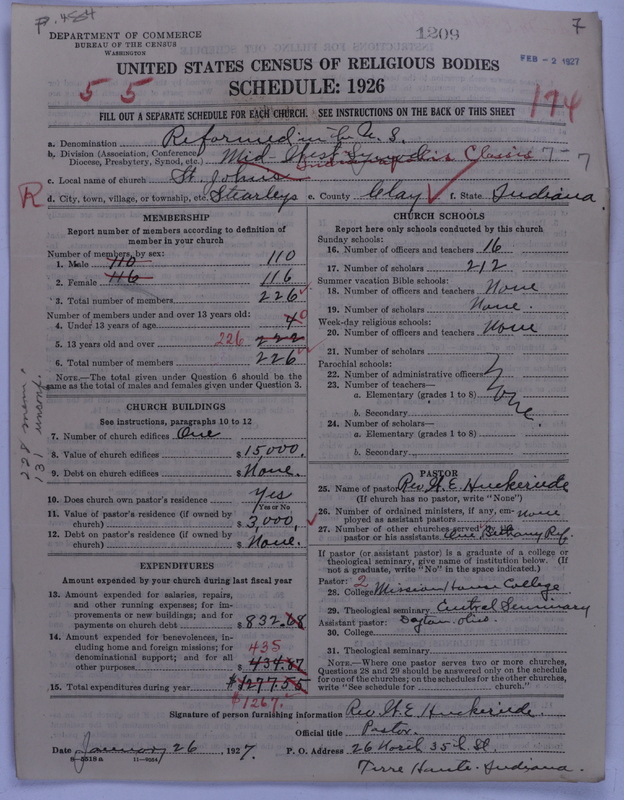 P. 484
1209
7
DEPARTMENT OF COMMERCE
BUREAU OF THE CENSUS
WASHINGTON
FEB - 2 1927
UNITED STATES CENSUS OF RELIGIOUS BODIES
55
SCHEDULE: 1926
174
FILL OUT A SEPARATE SCHEDULE FOR EACH CHURCH. SEE INSTRUCTIONS ON THE BACK OF THIS SHEET
a. Denomination Reformed in the U. S.
b. Division (Association, Conference, Diocese, Presbytery, Synod, etc.) Mid-West Synod Classis 7-7
c. Local name of church St. Johns
R
d. City, town, village, or township, etc. Stearleys e. County Clay f. State Indiana
MEMBERSHIP
Report number of members according to definition of
member in your church
Number of members, by sex:
1. Male 110 110
2. Female 116 116
3. Total number of members 226
Number of members under and over 13 years old:
4. Under 13 years of age 4 0
5. 13 years old and over 226 222
6. Total number of members 226
NOTE.—The total given under Question 6 should be the
same as the total of males and females given under Question 3.
228 mem.
131 unconf.
CHURCH BUILDINGS
See instructions, paragraphs 10 to 12
7. Number of church edifices One
8. Value of church edifices $15,000.
9. Debt on church edifices $ None.
10. Does church own pastor's residence Yes
Yes or No
11. Value of pastor's residence (if owned by
church) $ 3,000.
12. Debt on pastor's residence (if owned by
church) $ None.
EXPENDITURES
Amount expended by your church during last fiscal year
13. Amount expended for salaries, repairs,
and other running expenses; for im-
provements or new buildings; and for
payments on church debt $ 832.68
14. Amount expended for benevolences, in-
cluding home and foreign missions; for
denominational support; and for all
other purposes 435
$ 434.87
15. Total expenditures during year $1277.55
$1267.
CHURCH SCHOOLS
Report here only schools conducted by this church
Sunday schools:
16. Number of officers and teachers 16
17. Number of scholars 212
Summer vacation Bible schools:
18. Number of officers and teachers None
19. Number of scholars None.
Week-day religious schools:
20. Number of officers and teachers None
21. Number of scholars
Parochial schools:
22. Number of administrative officers
23. Number of teachers—
a. Elementary (grades 1 to 8) None.
b. Secondary
24. Number of scholars—
a. Elementary (grades 1 to 8)
b. Secondary
PASTOR
25. Name of pastor Rev. H. E. Huckeriede
(If church has no pastor, write "None")
26. Number of ordained ministers, if any, em-
ployed as assistant pastors None
27. Number of other churches served by the
pastor or his assistants One Bethany Ref.
If pastor (or assistant pastor) is a graduate of a college or
theological seminary, give name of institution below. (If
not a graduate, write "No" in the space indicated.)
Pastor: 2
28. College Mission House College
29. Theological seminary Central Seminary
Assistant pastor: Dayton. Ohio.
30. College
31. Theological seminary
NOTE.—Where one pastor serves two or more churches,
Questions 28 and 29 should be answered only on the schedule
for one of the churches; on the schedules for the other churches,
write "See schedule for church."
Signature of person furnishing information Rev. H. E. Huckeriede.
Official title Pastor.
Date January 26, 1927. P. O. Address 26 North 35th St.
8-5518a 11-9054
Terre Haute. Indiana.